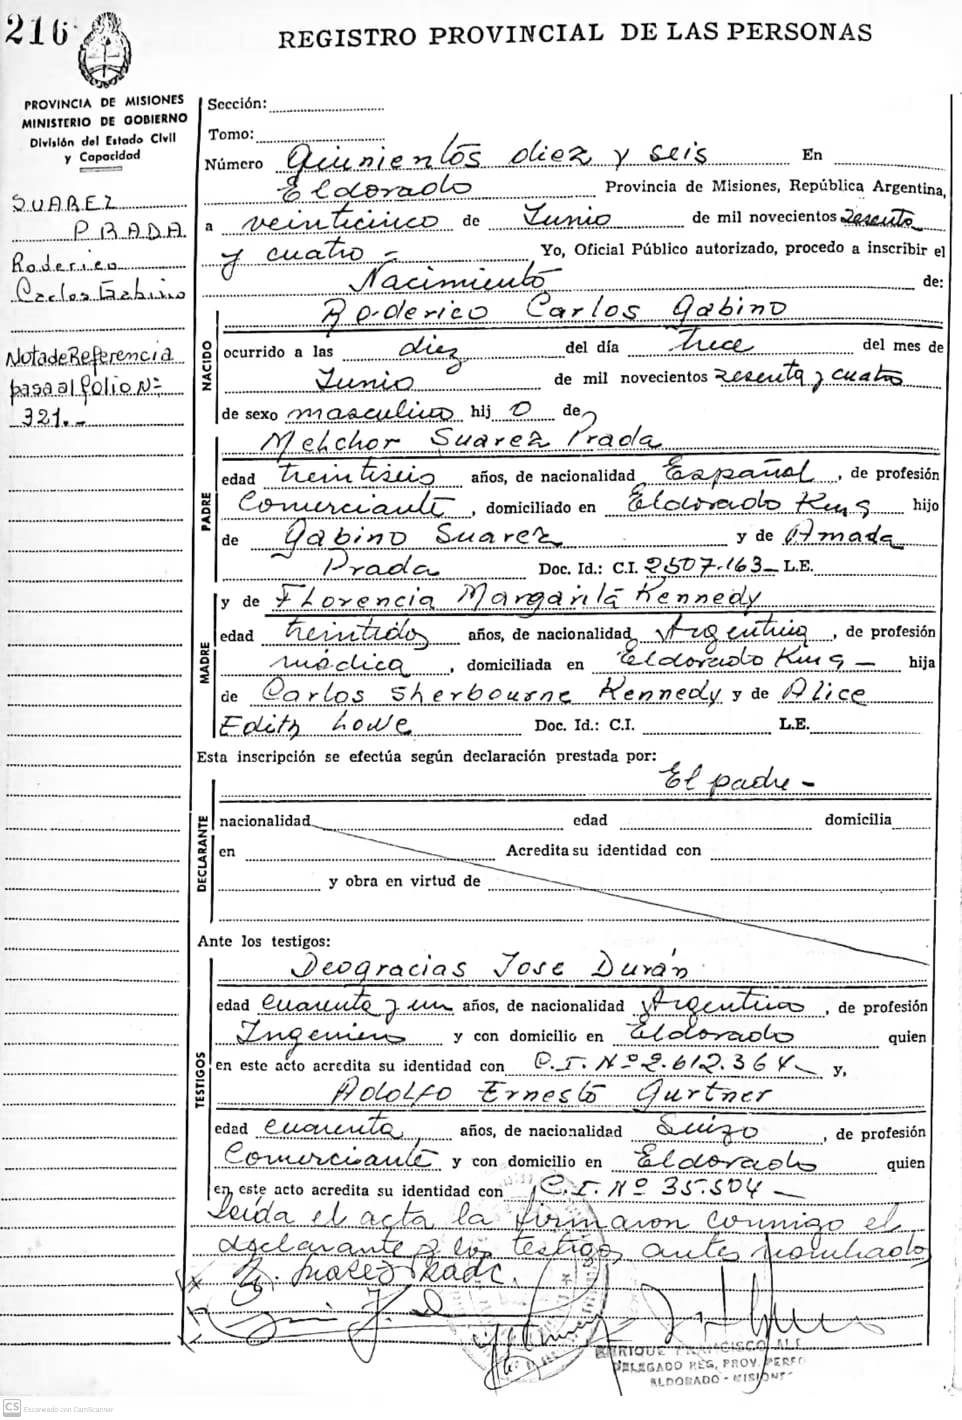 216
REGISTRO PROVINCIAL DE LAS PERSONAS
PROVINCIA DE MISIONES
MINISTERIO DE GOBIERNO
División del Estado Civil
y Capacidad
SUAREZ
PRADA
Roderico
Carlos Gabino
Nota de Referencia
pasa al folio Nº
321.-
Sección:
Tomo:
Número Quinientos diez y seis En
Eldorado Provincia de Misiones, República Argentina,
a veinticinco de Junio de mil novecientos sesenta
y cuatro - Yo, Oficial Público autorizado, procedo a inscribir el
Nacimiento de:
NACIDO
Roderico Carlos Gabino
ocurrido a las diez del día trece del mes de
Junio de mil novecientos sesenta y cuatro
de sexo masculino hij o de
PADRE
Melchor Suarez Prada
edad treintiseis años, de nacionalidad Español, de profesión
Comerciante, domiciliado en Eldorado King hijo
de Gabino Suarez y de Amada
Prada Doc. Id.: C.I. 2507.163- L.E.
MADRE
y de Florencia Margarita Kennedy
edad treintidos años, de nacionalidad Argentina, de profesión
médica, domiciliada en Eldorado King - hija
de Carlos Sherbourne Kennedy y de Alice
Edith Lowe Doc. Id.: C.I. L.E.
Esta inscripción se efectúa según declaración prestada por:
El padre -
DECLARANTE
nacionalidad edad domicilia
en Acredita su identidad con
y obra en virtud de
Ante los testigos:
TESTIGOS
Deogracias Jose Durán
edad cuarenta y un años, de nacionalidad Argentino, de profesión
Ingeniero y con domicilio en Eldorado quien
en este acto acredita su identidad con C.I. Nº 2.612.364- y,
Adolfo Ernesto Gurtner
edad cuarenta años, de nacionalidad Suizo, de profesión
Comerciante y con domicilio en Eldorado quien
en este acto acredita su identidad con C.I. Nº 35.504-
Leida el acta la firmaron conmigo el
declarante y los testigos antes nombrados
ENRIQUE FRANCISCO
DELEGADO REG. PROV. PERS
ELDORADO - MISIONES
CS Escaneado con CamScanner